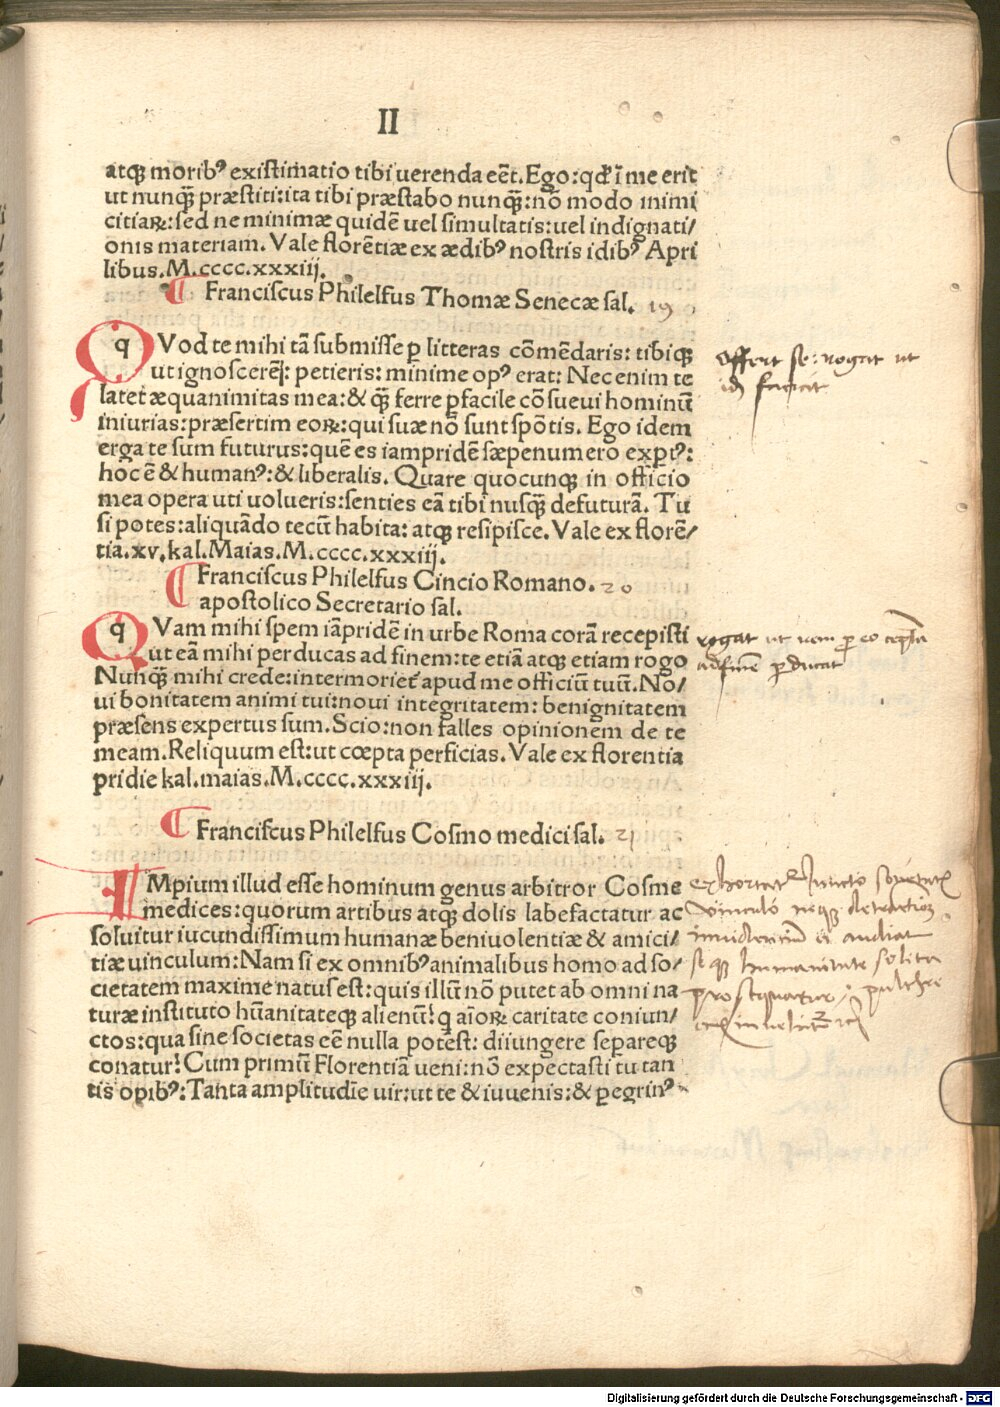 II
atqꝫ moribꝰ existimatio tibi uerenda eēt. Ego: qđ ī me erit
ut nunqꝫ̄ præstiti: ita tibi præstabo nunqꝫ̄: nō modo inimi
citiaꝝ: sed ne minimæ quidē uel simultatis: uel indignati/
onis materiam. Vale florētiæ ex ædibꝰ nostris idibꝰ Apri
libus. M.cccc.xxxiij.
Franciscus Philelfus Thomæ Senecæ sal. 19
q Vod te mihi tā submisse ꝑ litteras cōmēdaris: tibiqꝫ
ut ignoscerē: petieris: minime opꝰ erat: Nec enim te
latet æquanimitas mea: & qꝫ ferre ꝑfacile cōsueui hominū
iniurias: præsertim eoꝝ: qui suæ nō sunt spōtis. Ego idem
erga te sum futurus: quē es iampridē sæpenumero exꝑtꝰ:
hoc ē & humanꝰ: & liberalis. Quare quocunqꝫ in officio
mea opera uti uolueris: senties eā tibi nusqꝫ̄ defuturā. Tu
si potes: aliquādo tecū habita: atqꝫ resipisce. Vale ex florē/
tia. xv. kal. Maias. M.cccc.xxxiij.
Franciscus Philelfus Cincio Romano. 20
apostolico Secretario sal.
q Vam mihi spem iāpridē in urbe Roma corā recepisti
ut eā mihi perducas ad finem: te etiā atqꝫ etiam rogo
Nunqꝫ̄ mihi crede: intermorieť apud me officiū tuū. No/
ui bonitatem animi tui: noui integritatem: benignitatem
præsens expertus sum. Scio: non falles opinionem de te
meam. Reliquum est: ut cœpta perficias. Vale ex florentia
pridie kal. maias. M.cccc.xxxiij.
Franciscus Philelfus Cosmo medici sal. 21
IMpium illud esse hominum genus arbitror Cosme
medices: quorum artibus atqꝫ dolis labefactatur ac
soluitur iucundissimum humanæ beniuolentiæ & amici/
tiæ uinculum: Nam si ex omnibꝰ animalibus homo ad so/
cietatem maxime natus est: quis illū nō putet ab omni na
turæ instituto hūanitateqꝫ alienū! q aīoꝝ caritate coniun/
ctos: qua sine societas eē nulla potest: diiungere separeqꝫ
conatur! Cum primū Florentiā ueni: nō expectasti tu tan
tis opibꝰ: Tanta amplitudīe uir: ut te & iuuenis: & ꝑegrinꝰ
offert se: rogat ut
id faciat
rogat ut nem ꝑ eo cepta
ad finē ꝑducat
vinculo neqꝫ
audiat
se qꝫ humanitate solita
pulchre
Digitalisierung gefördert durch die Deutsche Forschungsgemeinschaft - DFG